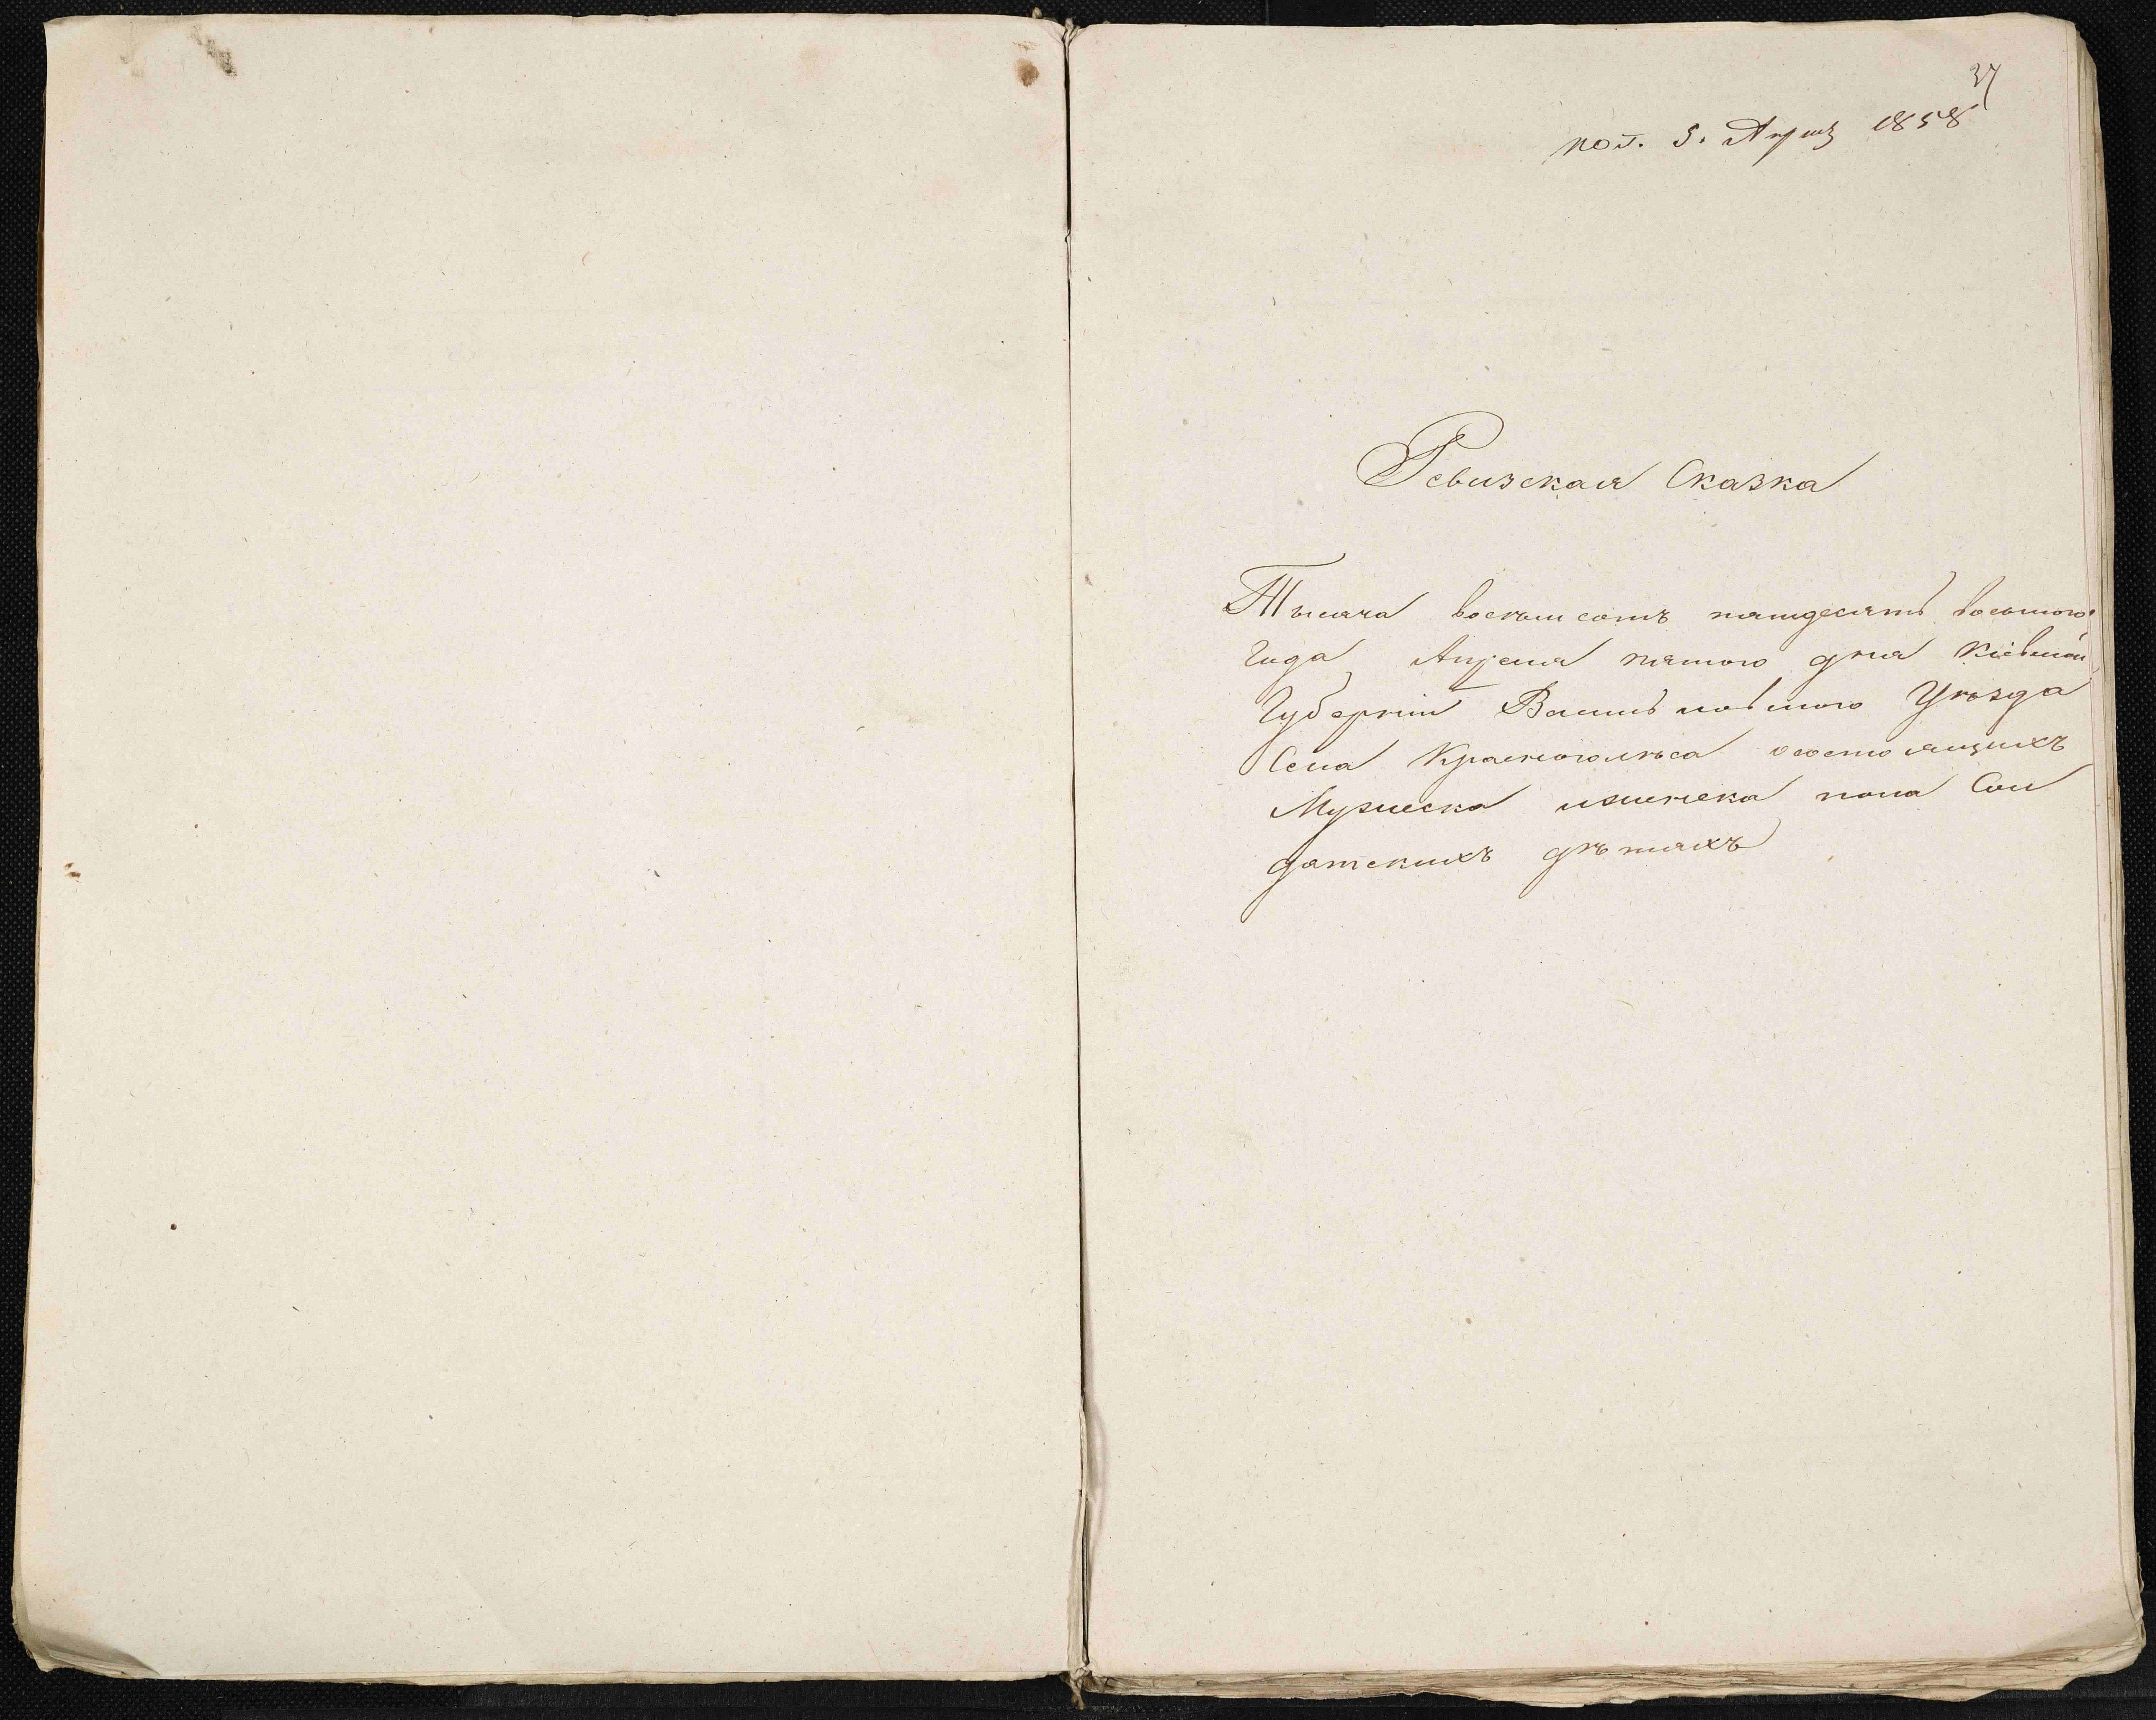 37
пол. 5. Апрѣл 1858
Ревизская Сказка
Тысяча восемьсотъ пятдесятъ восьмого
Года Апреля пятого дня Кіевской
Губерніи Васильковского Уѣзда
Села Красноголѣса осостоящихъ
Мужеска иженска пола Сол
датскихъ дѣтяхъ